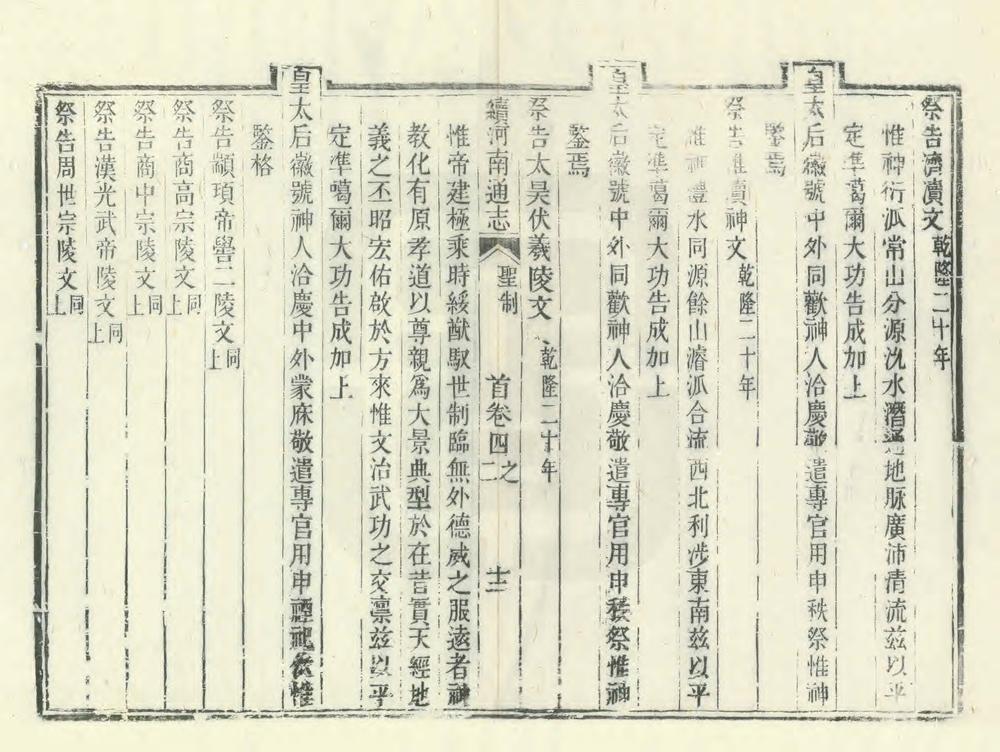 祭告濟瀆文乾隆二十年
惟神衍派常山分源沇水潛通地脈廣沛清流茲以平
定準葛爾大功告成加上
皇太后徽號中外同歡神人洽慶敬遣專官用申秩祭惟神
鑒焉
祭告淮瀆神文乾隆二十年
惟神澧水同源餘山濬派合流西北利涉東南茲以平
定準葛爾大功告成加上
皇太后徽號中外同歡神人洽慶敬遣專官用申秩祭惟神
鑒焉
祭告太昊伏羲陵文乾隆二十年
續河南通志 聖制 首卷四之二 十三
惟帝建極乘時綏猷馭世制臨無外德威之服遠者神
教化有原孝道以尊親爲大景典型於在昔實天經地
義之丕昭宏佑啟於方來惟文治武功之交凜茲以平
定準噶爾大功告成加上
皇太后徽號神人洽慶中外蒙庥敬遣專官用申禋祀伏惟
鑒格
祭告顓頊帝嚳二陵文同上
祭告商高宗陵文同上
祭告商中宗陵文同上
祭告漢光武帝陵文同上
祭告周世宗陵文同上